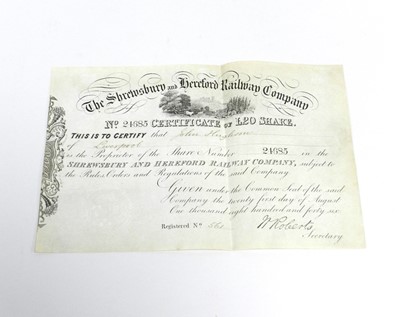 The Shrewsbury and Hereford Railway Company
No 24685 CERTIFICATE OF £20 SHARE.
THIS IS TO CERTIFY that John
of Liverpool
is the Proprietor of the Share Number 24685 in the
SHREWSBURY AND HEREFORD RAILWAY COMPANY, subject to
the Rules Orders and Regulations of the said Company.
Given under the Common Seal of the said
Company the twenty first day of August
One thousand eight hundred and forty six.
Registered No
W Roberts
Secretary